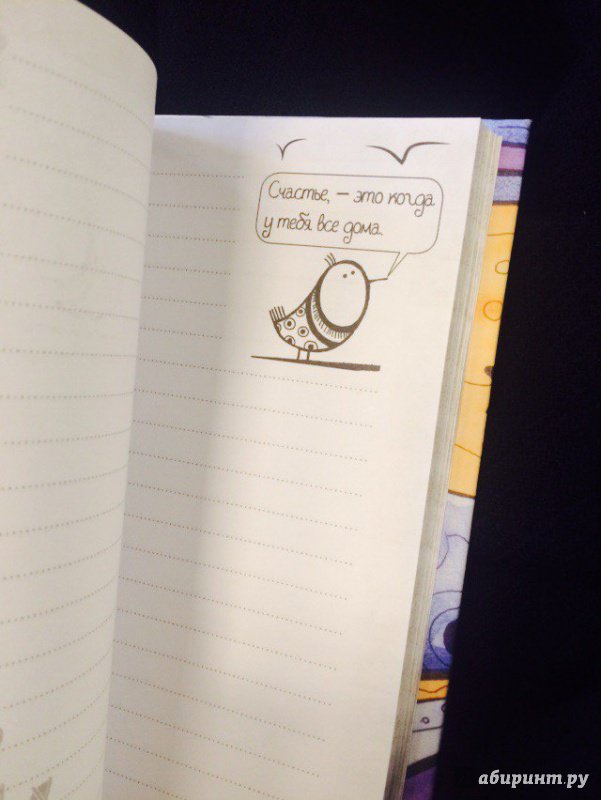 Счастье, – это когда
у тебя все дома.
абиринт.ру